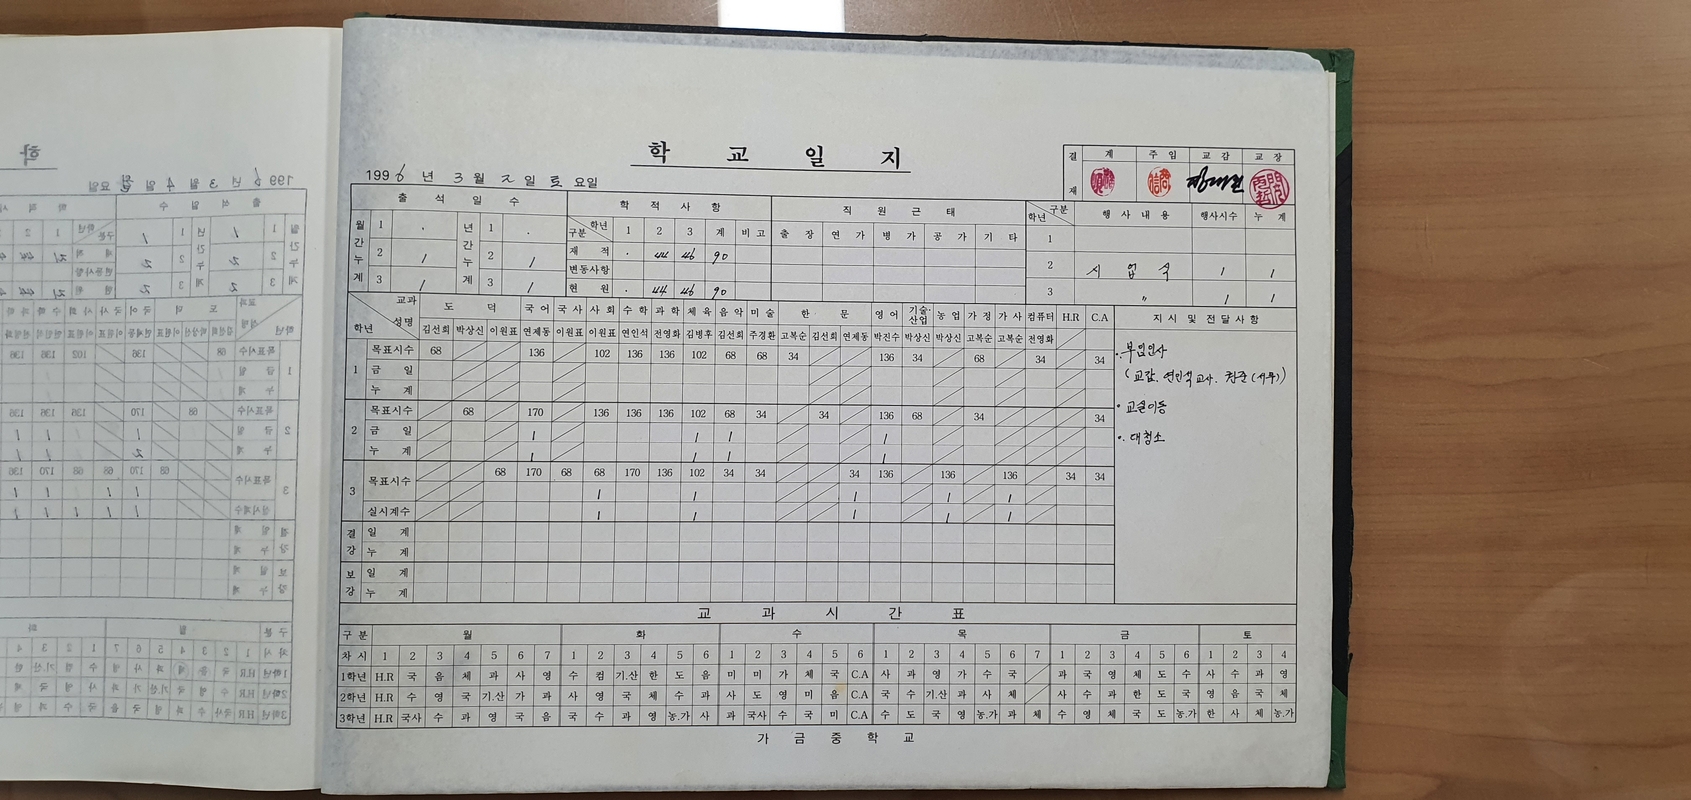 학 교 일 지
1996 년 3 월 2 일 토 요일
결 재 계 주 임 교 감 교 장
출 석 일 수 학 적 사 항 직 원 근 태 학년 구분 행 사 내 용 행사시수 누 계
월 간 누 계 1 · 년 간 누 계 1 · 구분 학년 1 2 3 계 비 고 출 장 연 가 병 가 공 가 기 타 1
2 1 2 1 재 적 · 44 46 90 2 시 업 식 1 1
변동사항
3 1 3 1 현 원 · 44 46 90 3 〃 1 1
학년 성명 교과 도 덕 국 어 국 사 사 회 수 학 과 학 체 육 음 악 미 술 한 문 영 어 기술·산업 농 업 가 정 가 사 컴퓨터 H.R C.A 지 시 및 전 달 사 항
김선희 박상신 이원표 연제동 이원표 이원표 연인석 전영화 김병후 김선희 주경환 고복순 김선희 연제동 박진수 박상신 박상신 고복순 고복순 전영화
1 목표시수 68 136 102 136 136 102 68 68 34 136 34 68 34 34
금 일
누 계
2 목표시수 68 170 136 136 136 102 68 34 34 136 68 34 34
금 일 1 1 1 1
누 계 1 1 1 1
3 목표시수 68 170 68 68 170 136 102 34 34 34 136 136 136 34 34
1 1 1 1 1
실시계수 1 1 1 1 1
· 부임인사
(교감, 연인석 교사.
· 교실이동
· 대청소
결 강 일 계
누 계
보 강 일 계
누 계
교 과 시 간 표
구 분 월 화 수 목 금 토
차 시 1 2 3 4 5 6 7 1 2 3 4 5 6 1 2 3 4 5 6 1 2 3 4 5 6 7 1 2 3 4 5 6 1 2 3 4
1학년 H.R 국 음 체 과 사 영 수 컴 기.산 한 도 음 미 미 가 체 국 C.A 사 과 영 가 수 국 과 국 영 체 도 수 사 수 과 영
2학년 H.R 수 영 국 기.산 가 과 사 영 국 체 수 과 사 도 영 미 음 C.A 국 수 기.산 과 사 체 사 수 과 한 도 국 영 음 국 체
3학년 H.R 국사 수 과 영 국 음 국 수 과 영 농.가 사 과 국사 수 국 미 C.A 수 도 국 영 농.가 과 체 수 영 체 국 도 농.가 한 사 체 농.가
가 금 중 학 교